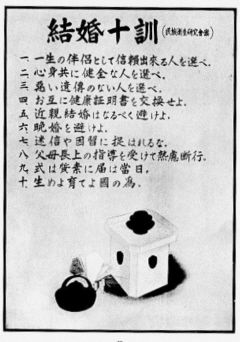 結婚十訓(民族衛生研究會案)
一、一生の伴侶として信頼出來る人を選べ。
二、心身共に健全な人を選べ。
三、悪い遺傳のない人を選べ。
四、お互に健康証明書を交換せよ。
五、近親結婚はなるべく避けよ。
六、晩婚を避けよ。
七、迷信や因習に捉はれるな。
八、父母長上の指導を受けて熟慮断行。
九、式は質素に届は當日。
十、生めよ育てよ國の為。